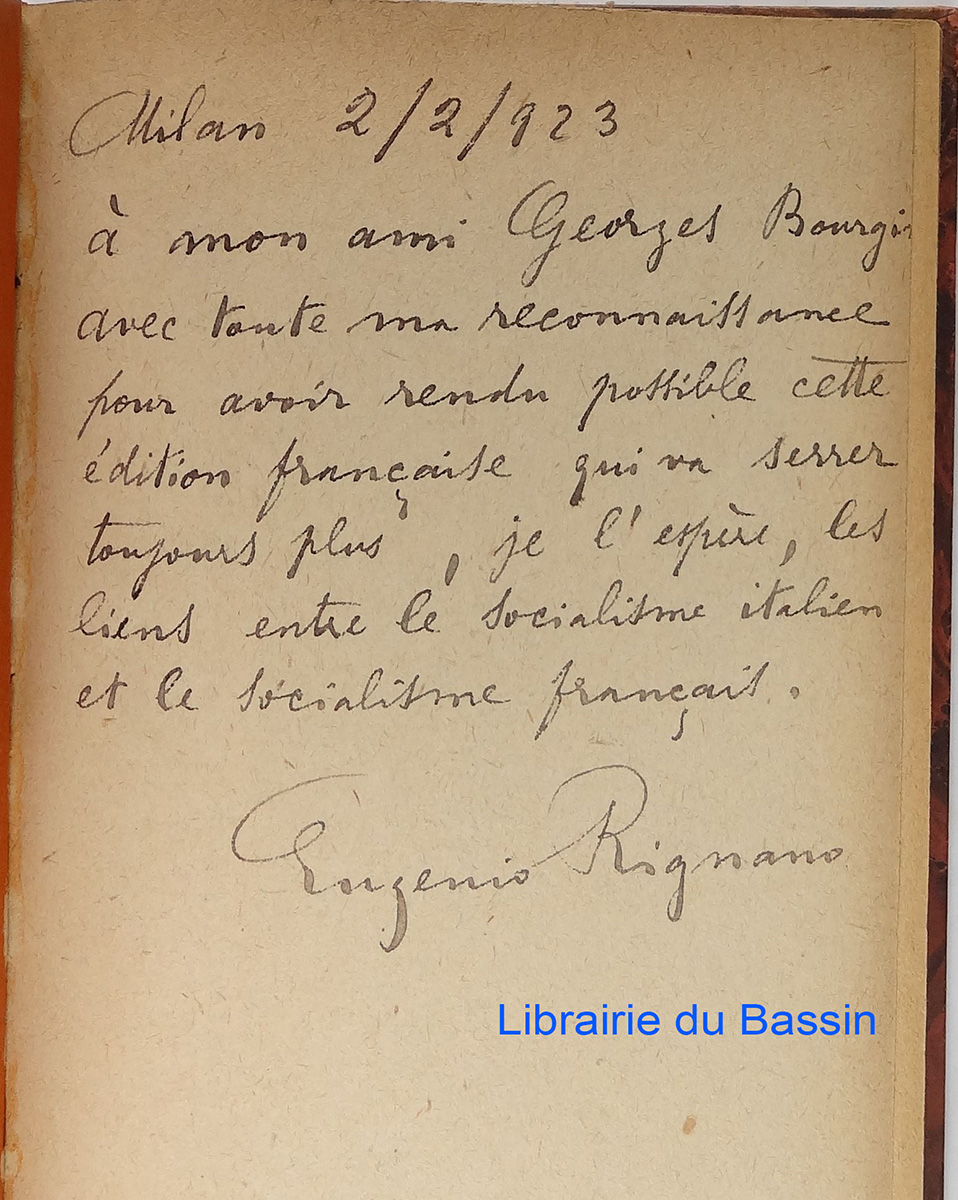 Milan 2/2/923
à mon ami Georges Bourgin
avec toute ma reconnaissance
pour avoir rendu possible cette
édition française qui va serrer
toujours plus, je l'espère, les
liens entre le socialisme italien
et le socialisme français.
Eugenio Rignano
Librairie du Bassin